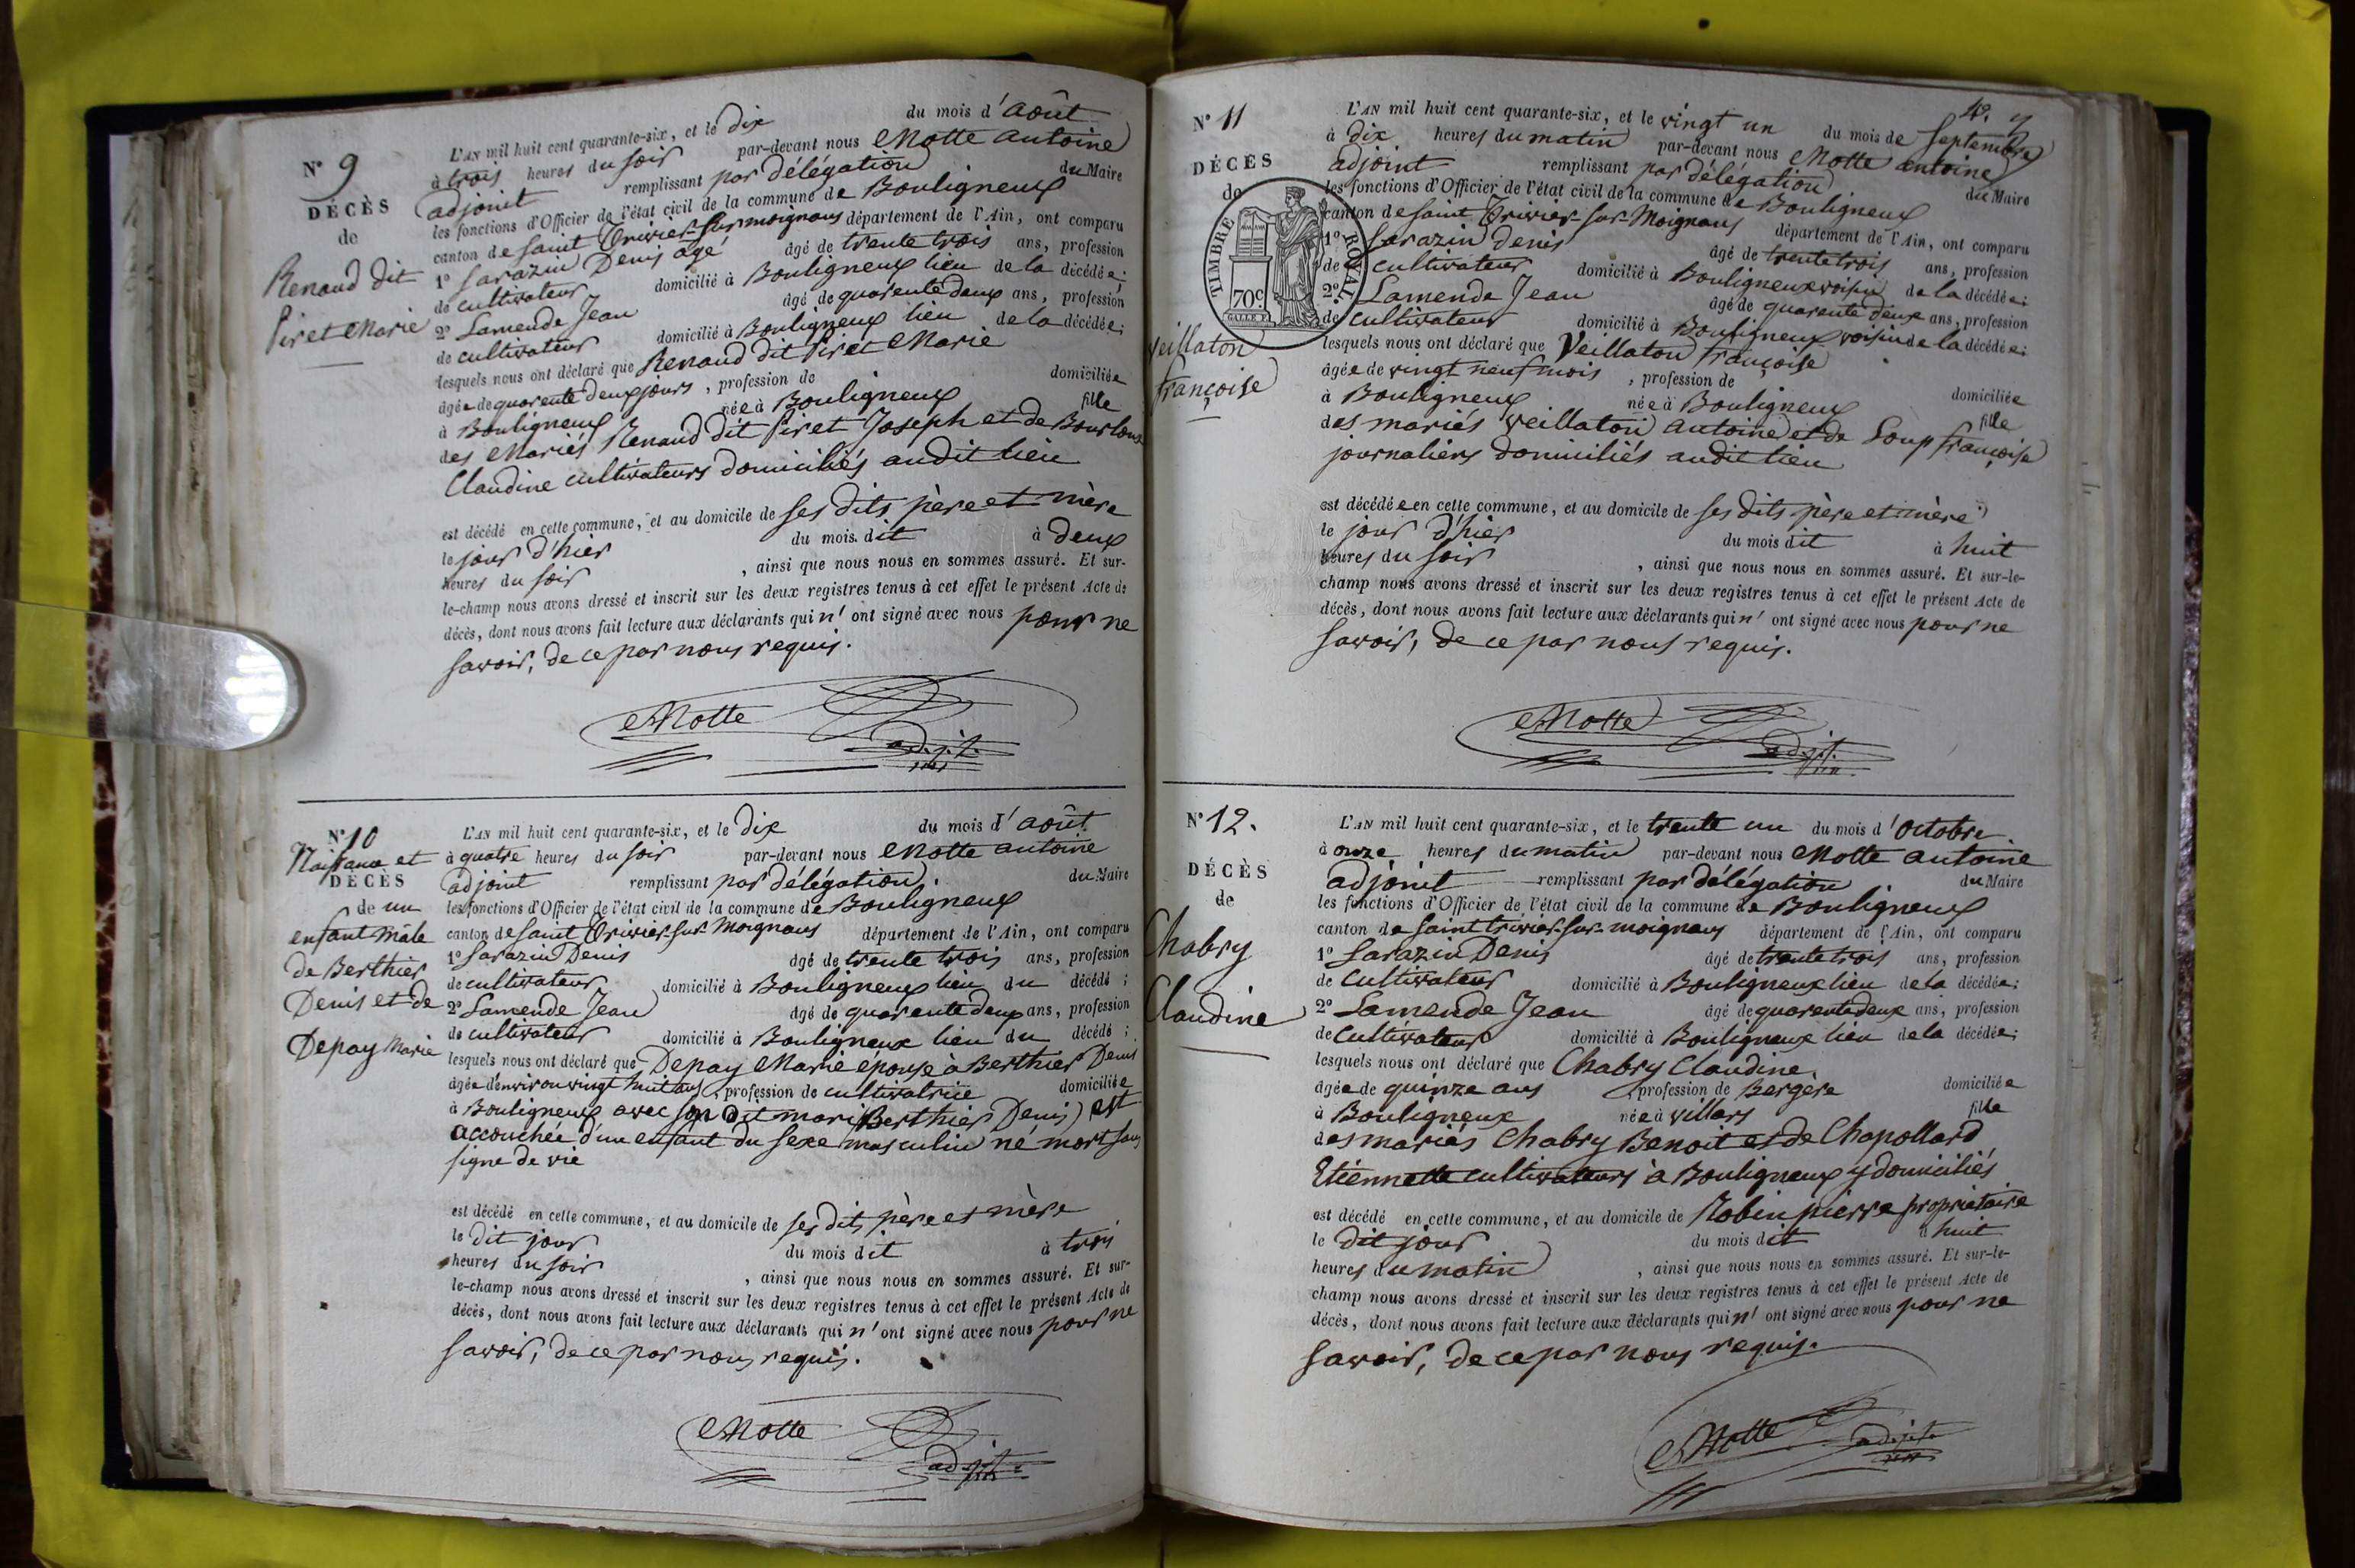 N° 9
DÉCÈS
de
Renaud dit
Piret Marie
L'AN mil huit cent quarante-six, et le dix du mois d'Août
à trois heures du soir par-devant nous Motte antoine
adjoint remplissant par délégation du Maire
les fonctions d'Officier de l'état civil de la commune de Bouligneux
canton de saint Trivier-sur-moignans département de l'Ain, ont comparu
1° Sarazin Denis agé âgé de trente trois ans, profession
de cultivateur domicilié à Bouligneux lieu de la décédée;
2° Lamende Jean âgé de quarente deux ans, profession
de cultivateur domicilié à Bouligneux lieu de la décédée;
lesquels nous ont déclaré que Renaud dit Piret Marie
âgée de quarente deux jours, profession de domiciliée
à Bouligneux née à Bouligneux fille
des Mariés Renaud dit Piret Joseph et de
Claudine cultivateurs domiciliés audit lieu
est décédé en cette commune, et au domicile de ses dits père et mère
le jour d'hier du mois dit à deux
heures du soir, ainsi que nous nous en sommes assuré. Et sur-
le-champ nous avons dressé et inscrit sur les deux registres tenus à cet effet le présent Acte de
décès, dont nous avons fait lecture aux déclarants qui n'ont signé avec nous pour ne
savoir, de ce par nous requis.
Motte
adjt.
N° 10
Naissance et
DÉCÈS
de un
enfant mâle
de Berthier
Denis et de
Depay Marie
L'AN mil huit cent quarante-six, et le Dix du mois d'août
à quatre heures du soir par-devant nous Motte antoine
adjoint remplissant par délégation du Maire
les fonctions d'Officier de l'état civil de la commune de Bouligneux
canton de saint Trivier-sur-Moignans département de l'Ain, ont comparu
1° Sarazin Denis âgé de trente trois ans, profession
de cultivateur domicilié à Bouligneux lieu du décédé;
2° Lamende Jean âgé de quarente deux ans, profession
de cultivateur domicilié à Bouligneux lieu du décédé;
lesquels nous ont déclaré que Depay Marie épouse à Berthier Denis
âgée d'environ vingt huit ans, profession de cultivatrice domiciliée
à Bouligneux avec son dit mari Berthier Denis est
accouchée d'un enfant du sexe masculin né mort sans
signe de vie
est décédé en cette commune, et au domicile de ses dits père et mère
le dit jour du mois dit à trois
heures du soir, ainsi que nous nous en sommes assuré. Et sur-
le-champ nous avons dressé et inscrit sur les deux registres tenus à cet effet le présent Acte de
décès, dont nous avons fait lecture aux déclarants qui n'ont signé avec nous pour ne
savoir, de ce par nous requis.
Motte
adjt.
N° 11
DÉCÈS
de
TIMBRE ROYAL
70c.
Veillaton
françoise
L'AN mil huit cent quarante-six, et le vingt un du mois de septembre
à dix heures du matin par-devant nous Motte antoine
adjoint remplissant par délégation du Maire
les fonctions d'Officier de l'état civil de la commune de Bouligneux
canton de saint Trivier-sur-Moignans département de l'Ain, ont comparu
1° Sarazin denis âgé de trente trois ans, profession
de cultivateur domicilié à Bouligneux voisin de la décédée;
2° Lamende Jean âgé de quarente deux ans, profession
de cultivateur domicilié à Bouligneux voisin de la décédée;
lesquels nous ont déclaré que Veillaton françoise
âgée de vingt neuf mois, profession de domiciliée
à Bouligneux née à Bouligneux fille
des mariés veillaton antoine et de Loup françoise
journaliers domiciliés audit lieu
est décédée en cette commune, et au domicile de ses dits père et mère
le jour d'hier du mois dit à huit
heures du soir, ainsi que nous nous en sommes assuré. Et sur-le-
champ nous avons dressé et inscrit sur les deux registres tenus à cet effet le présent Acte de
décès, dont nous avons fait lecture aux déclarants qui n'ont signé avec nous pour ne
savoir, de ce par nous requis.
Motte
adjt.
N° 12.
DÉCÈS
de
Chabry
Claudine
L'AN mil huit cent quarante-six, et le trente un du mois d'octobre
à onze heures du matin par-devant nous Motte antoine
adjoint remplissant par délégation du Maire
les fonctions d'Officier de l'état civil de la commune de Bouligneux
canton de saint trivier-sur-moignans département de l'Ain, ont comparu
1° Sarazin Denis âgé de trente trois ans, profession
de cultivateur domicilié à Bouligneux lieu de la décédée;
2° Lamende Jean âgé de quarente deux ans, profession
de cultivateur domicilié à Bouligneux lieu de la décédée;
lesquels nous ont déclaré que Chabry Claudine
âgée de quinze ans, profession de Bergere domiciliée
à Bouligneux née à villars fille
des mariés Chabry Benoit et de Chapollard
Etiennette cultivateurs à Bouligneux y domiciliés
est décédé en cette commune, et au domicile de Robin pierre propriétaire
le dit jour du mois dit à huit
heures du matin, ainsi que nous nous en sommes assuré. Et sur-le-
champ nous avons dressé et inscrit sur les deux registres tenus à cet effet le présent Acte de
décès, dont nous avons fait lecture aux déclarants qui n'ont signé avec nous pour ne
savoir, de ce par nous requis.
Motte
adjt.